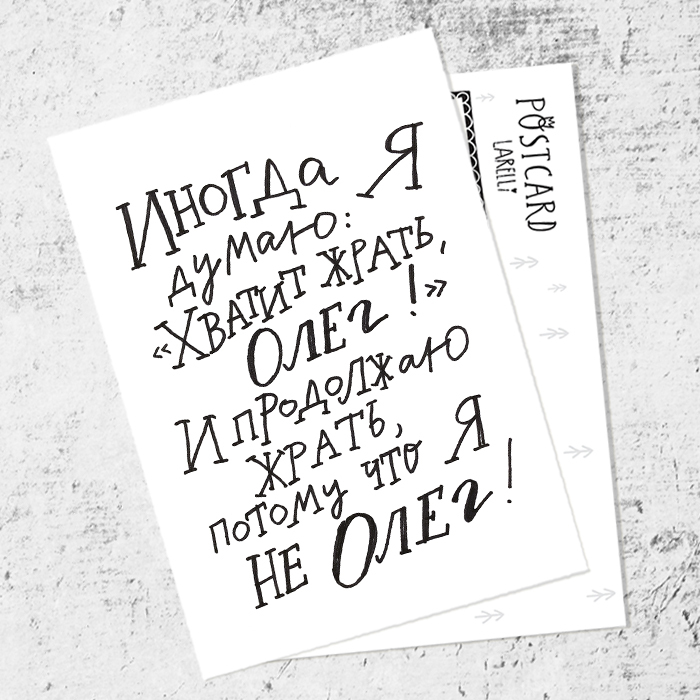 Иногда Я
думаю:
«Хватит жрать,
Олег!»
И продолжаю
жрать,
потому что Я
не Олег!
POSTCARD
LARELLI